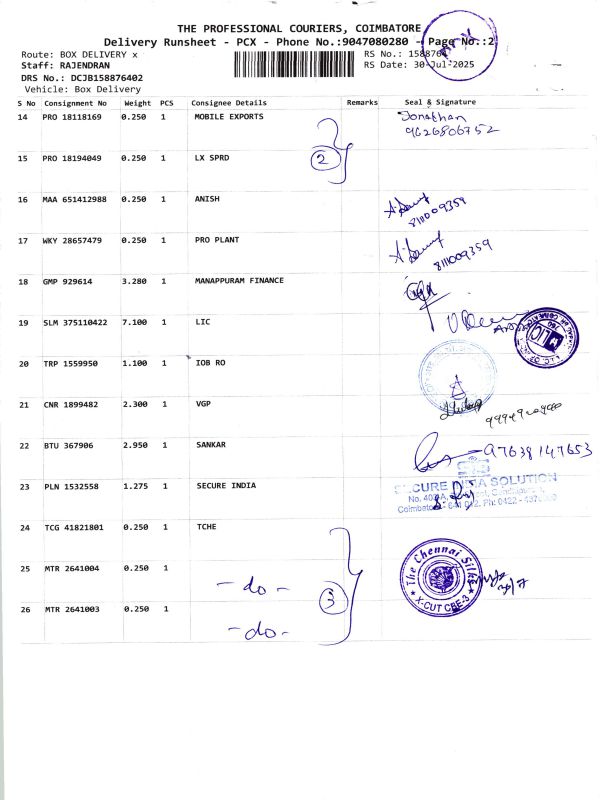 THE PROFESSIONAL COURIERS, COIMBATORE
Delivery Runsheet - PCX - Phone No.:9047080280 - Page No.:2
Route: BOX DELIVERY x
RS No.: 1588764
Staff: RAJENDRAN
RS Date: 30-Jul-2025
DRS No.: DCJB158876402
Vehicle: Box Delivery
S No Consignment No Weight PCS Consignee Details Remarks Seal & Signature
14 PRO 18118169 0.250 1 MOBILE EXPORTS Jonathan
9626806752
15 PRO 18194049 0.250 1 LX SPRD
2
16 MAA 651412988 0.250 1 ANISH
8111009359
17 WKY 28657479 0.250 1 PRO PLANT
8111009359
18 GMP 929614 3.280 1 MANAPPURAM FINANCE
19 SLM 375110422 7.100 1 LIC
LIC
20 TRP 1559950 1.100 1 IOB RO
21 CNR 1899482 2.300 1 VGP
22 BTU 367906 2.950 1 SANKAR
97638147653
23 PLN 1532558 1.275 1 SECURE INDIA
SECURE INDIA SOLUTION
24 TCG 41821801 0.250 1 TCHE
25 MTR 2641004 0.250 1
-do-
3
The Chennai Silks
X-CUT CBE-3
26 MTR 2641003 0.250 1
-do-